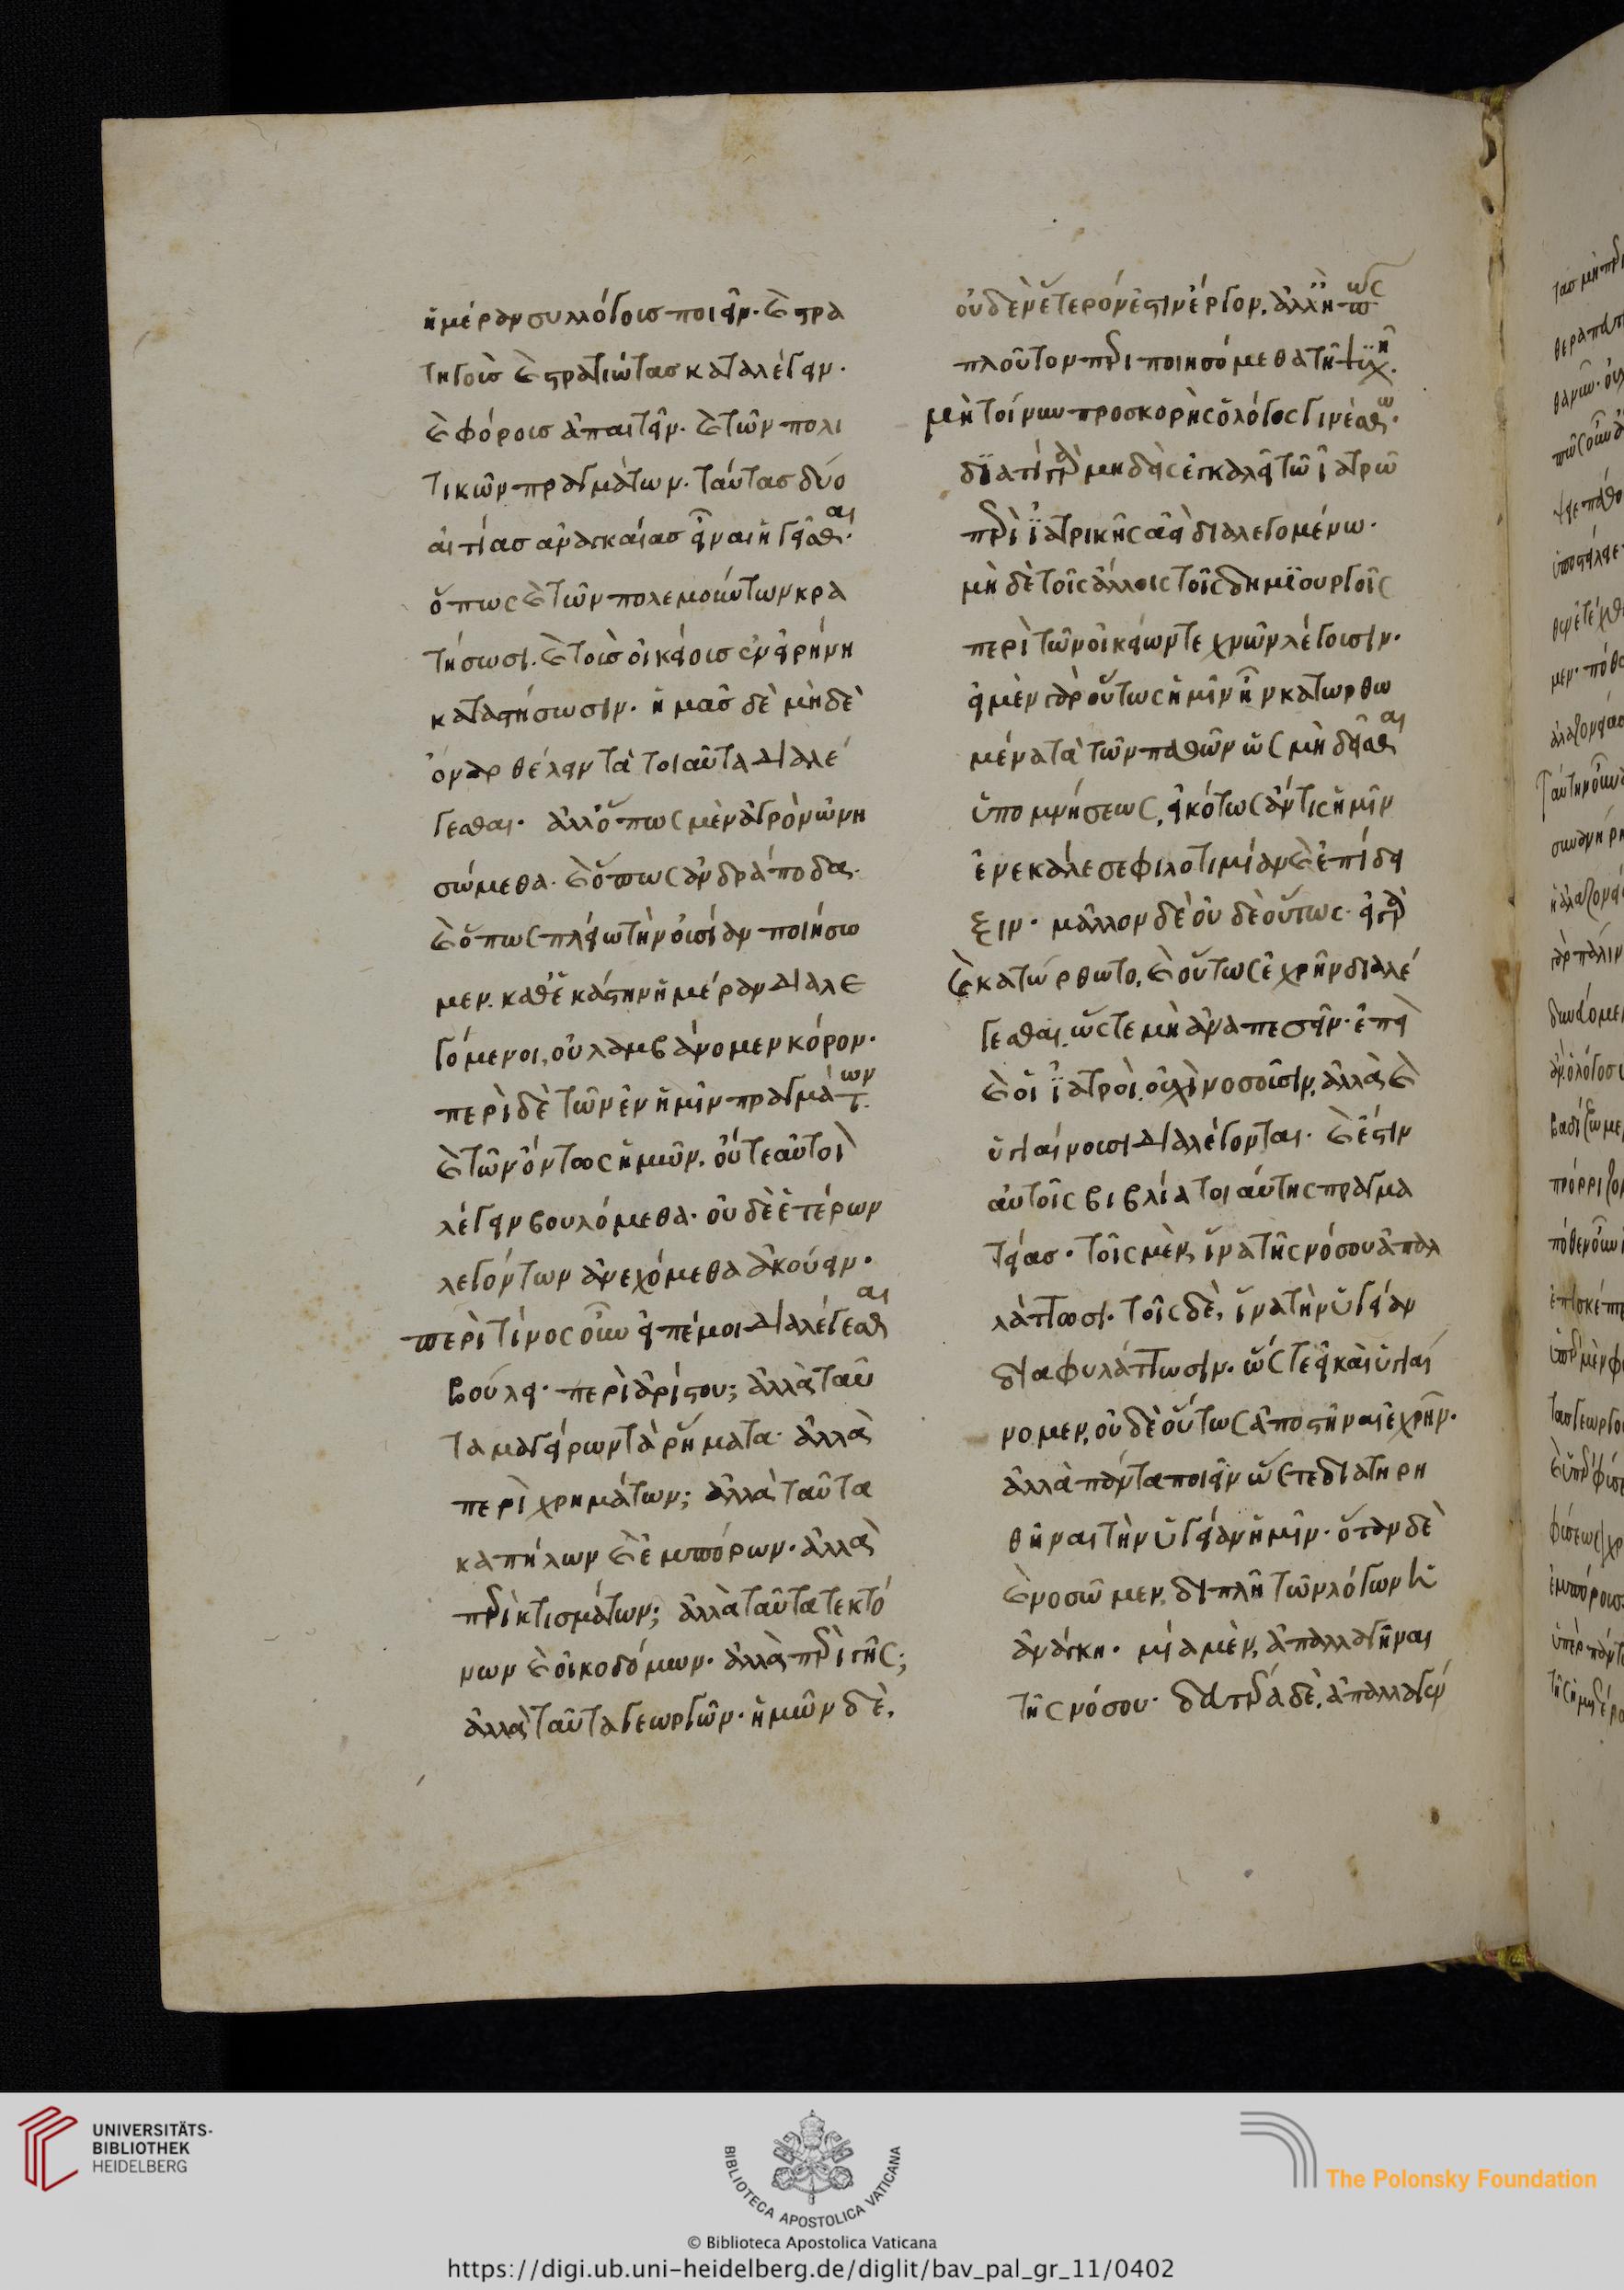 ἡμέραν συλλόγοις ποιεῖν· καὶ στρα
τηγοῖς καὶ στρατιώτας καταλέγειν·
καὶ φόροις ἀπαιτεῖν· καὶ τῶν πολι
τικῶν πραγμάτων· ταύτας δύο
αἰτίας ἀναγκαίας εἶναι ἡγεῖσθαι·
ὅπως καὶ τῶν πολεμούντων κρα
τήσωσι· καὶ τοῖς οἰκείοις ἐν εἰρήνῃ
καταστήσωσιν· ἡμᾶς δὲ μὴδὲ
ὄναρ θέλειν τὰ τοιαῦτα διαλέ
γεσθαι· ἀλλ' ὅπως μὲν ἀγρὸν ὠνη
σώμεθα· καὶ ὅπως ἀνδράποδας·
καὶ ὅπως πλείω τὴν οὐσίαν ποιήσω
μεν· καθ' ἑκάστην ἡμέραν διαλε
γόμενοι, οὐ λαμβάνομεν κόρον·
περὶ δὲ τῶν ἐν ἡμῖν πραγμάτων
καὶ τῶν ὄντως ἡμῶν, οὔτε αὐτοὶ
λέγειν βουλόμεθα· οὐδὲ ἑτέρων
λεγόντων ἀνεχόμεθα ἀκούειν·
περὶ τίνος οὖν εἰπέ μοι διαλέγεσθαι
βούλει· περὶ ἀρίστου; ἀλλὰ ταῦ
τα μαγείρων τὰ ῥήματα· ἀλλὰ
περὶ χρημάτων; ἀλλὰ ταῦτα
καπήλων καὶ ἐμπόρων· ἀλλὰ
περὶ κτισμάτων; ἀλλὰ ταῦτα τεκτό
νων καὶ οἰκοδόμων· ἀλλὰ περὶ γῆς;
ἀλλὰ ταῦτα γεωργῶν· ἡμῶν δὲ,
οὐδὲν ἕτερόν ἐστιν ἔργον, ἀλλ' ἢ πῶς
πλοῦτον περιποιησόμεθα τῇ ψυχῇ·
μὴ τοίνυν προσκορὴς ὁ λόγος γινέσθω·
διατί γὰρ μηδεὶς ἐγκαλεῖ τῷ ἰατρῷ
περὶ ἰατρικῆς ἀεὶ διαλεγομένῳ·
μὴδὲ τοῖς ἄλλοις τοῖς δημιουργοῖς
περὶ τῶν οἰκείων τεχνῶν λέγουσιν·
εἰ μὲν γὰρ οὕτως ἡμῖν ἦν κατωρθω
μένα τὰ τῶν παθῶν ὡς μὴ δεῖσθαι
ὑπομνήσεως, εἰκότως ἄν τις ἡμῖν
ἐνεκάλεσε φιλοτιμίαν καὶ ἐπίδει
ξιν· μᾶλλον δὲ οὐδὲ οὕτως· εἰ γὰρ
καὶ κατώρθωτο, καὶ οὕτως ἐχρῆν διαλέ
γεσθαι ὥστε μὴ ἀναπεσεῖν· ἐπεὶ
καὶ οἱ ἰατροὶ οὐχὶ νοσοῦσιν, ἀλλὰ καὶ
ὑγιαίνουσι διαλέγονται· καὶ ἔστιν
αὐτοῖς βιβλία τοιαύτης πραγμα
τείας· τοῖς μὲν, ἵνα τῆς νόσου ἀπαλ
λάττωσι· τοῖς δὲ, ἵνα τὴν ὑγείαν
διαφυλάττωσιν· ὥστε εἰ καὶ ὑγιαί
νομεν, οὐδὲ οὕτως ἀποστῆναι ἐχρῆν·
ἀλλὰ πάντα ποιεῖν ὥστε διατηρη
θῆναι τὴν ὑγείαν ἡμῖν· ὅταν δὲ
καὶ νοσῶμεν, διπλῆ τῶν λόγων ἡ
ἀνάγκη· μία μὲν, ἀπαλλαγῆναι
τῆς νόσου· δευτέρα δὲ, ἀπαλλαγέν
UNIVERSITÄTS-
BIBLIOTHEK
HEIDELBERG
BIBLIOTECA APOSTOLICA VATICANA
© Biblioteca Apostolica Vaticana
The Polonsky Foundation
https://digi.ub.uni-heidelberg.de/diglit/bav_pal_gr_11/0402